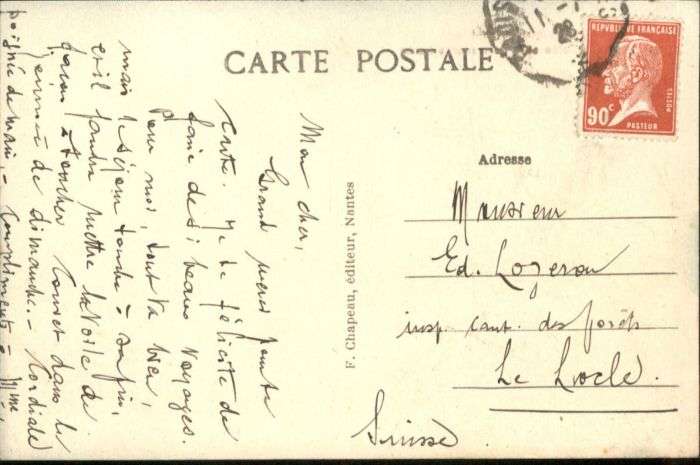 CARTE POSTALE
RÉPUBLIQUE FRANÇAISE
POSTES
90c
PASTEUR
28
Mon cher,
Grand merci pour ta
carte. Je te félicite de
faire de si beaux voyages.
Pour moi, tout va bien,
mais le séjour touche à sa fin,
et il faudra mettre la voile de
façon à toucher Locret dans la
journée de dimanche. - Cordiale
poignée de main, - Compliments à Mme
F. Chapeau, éditeur, Nantes
Adresse
Monsieur
Ed. Lozeron
insp. cant. des forêts
Le Locle.
Suisse